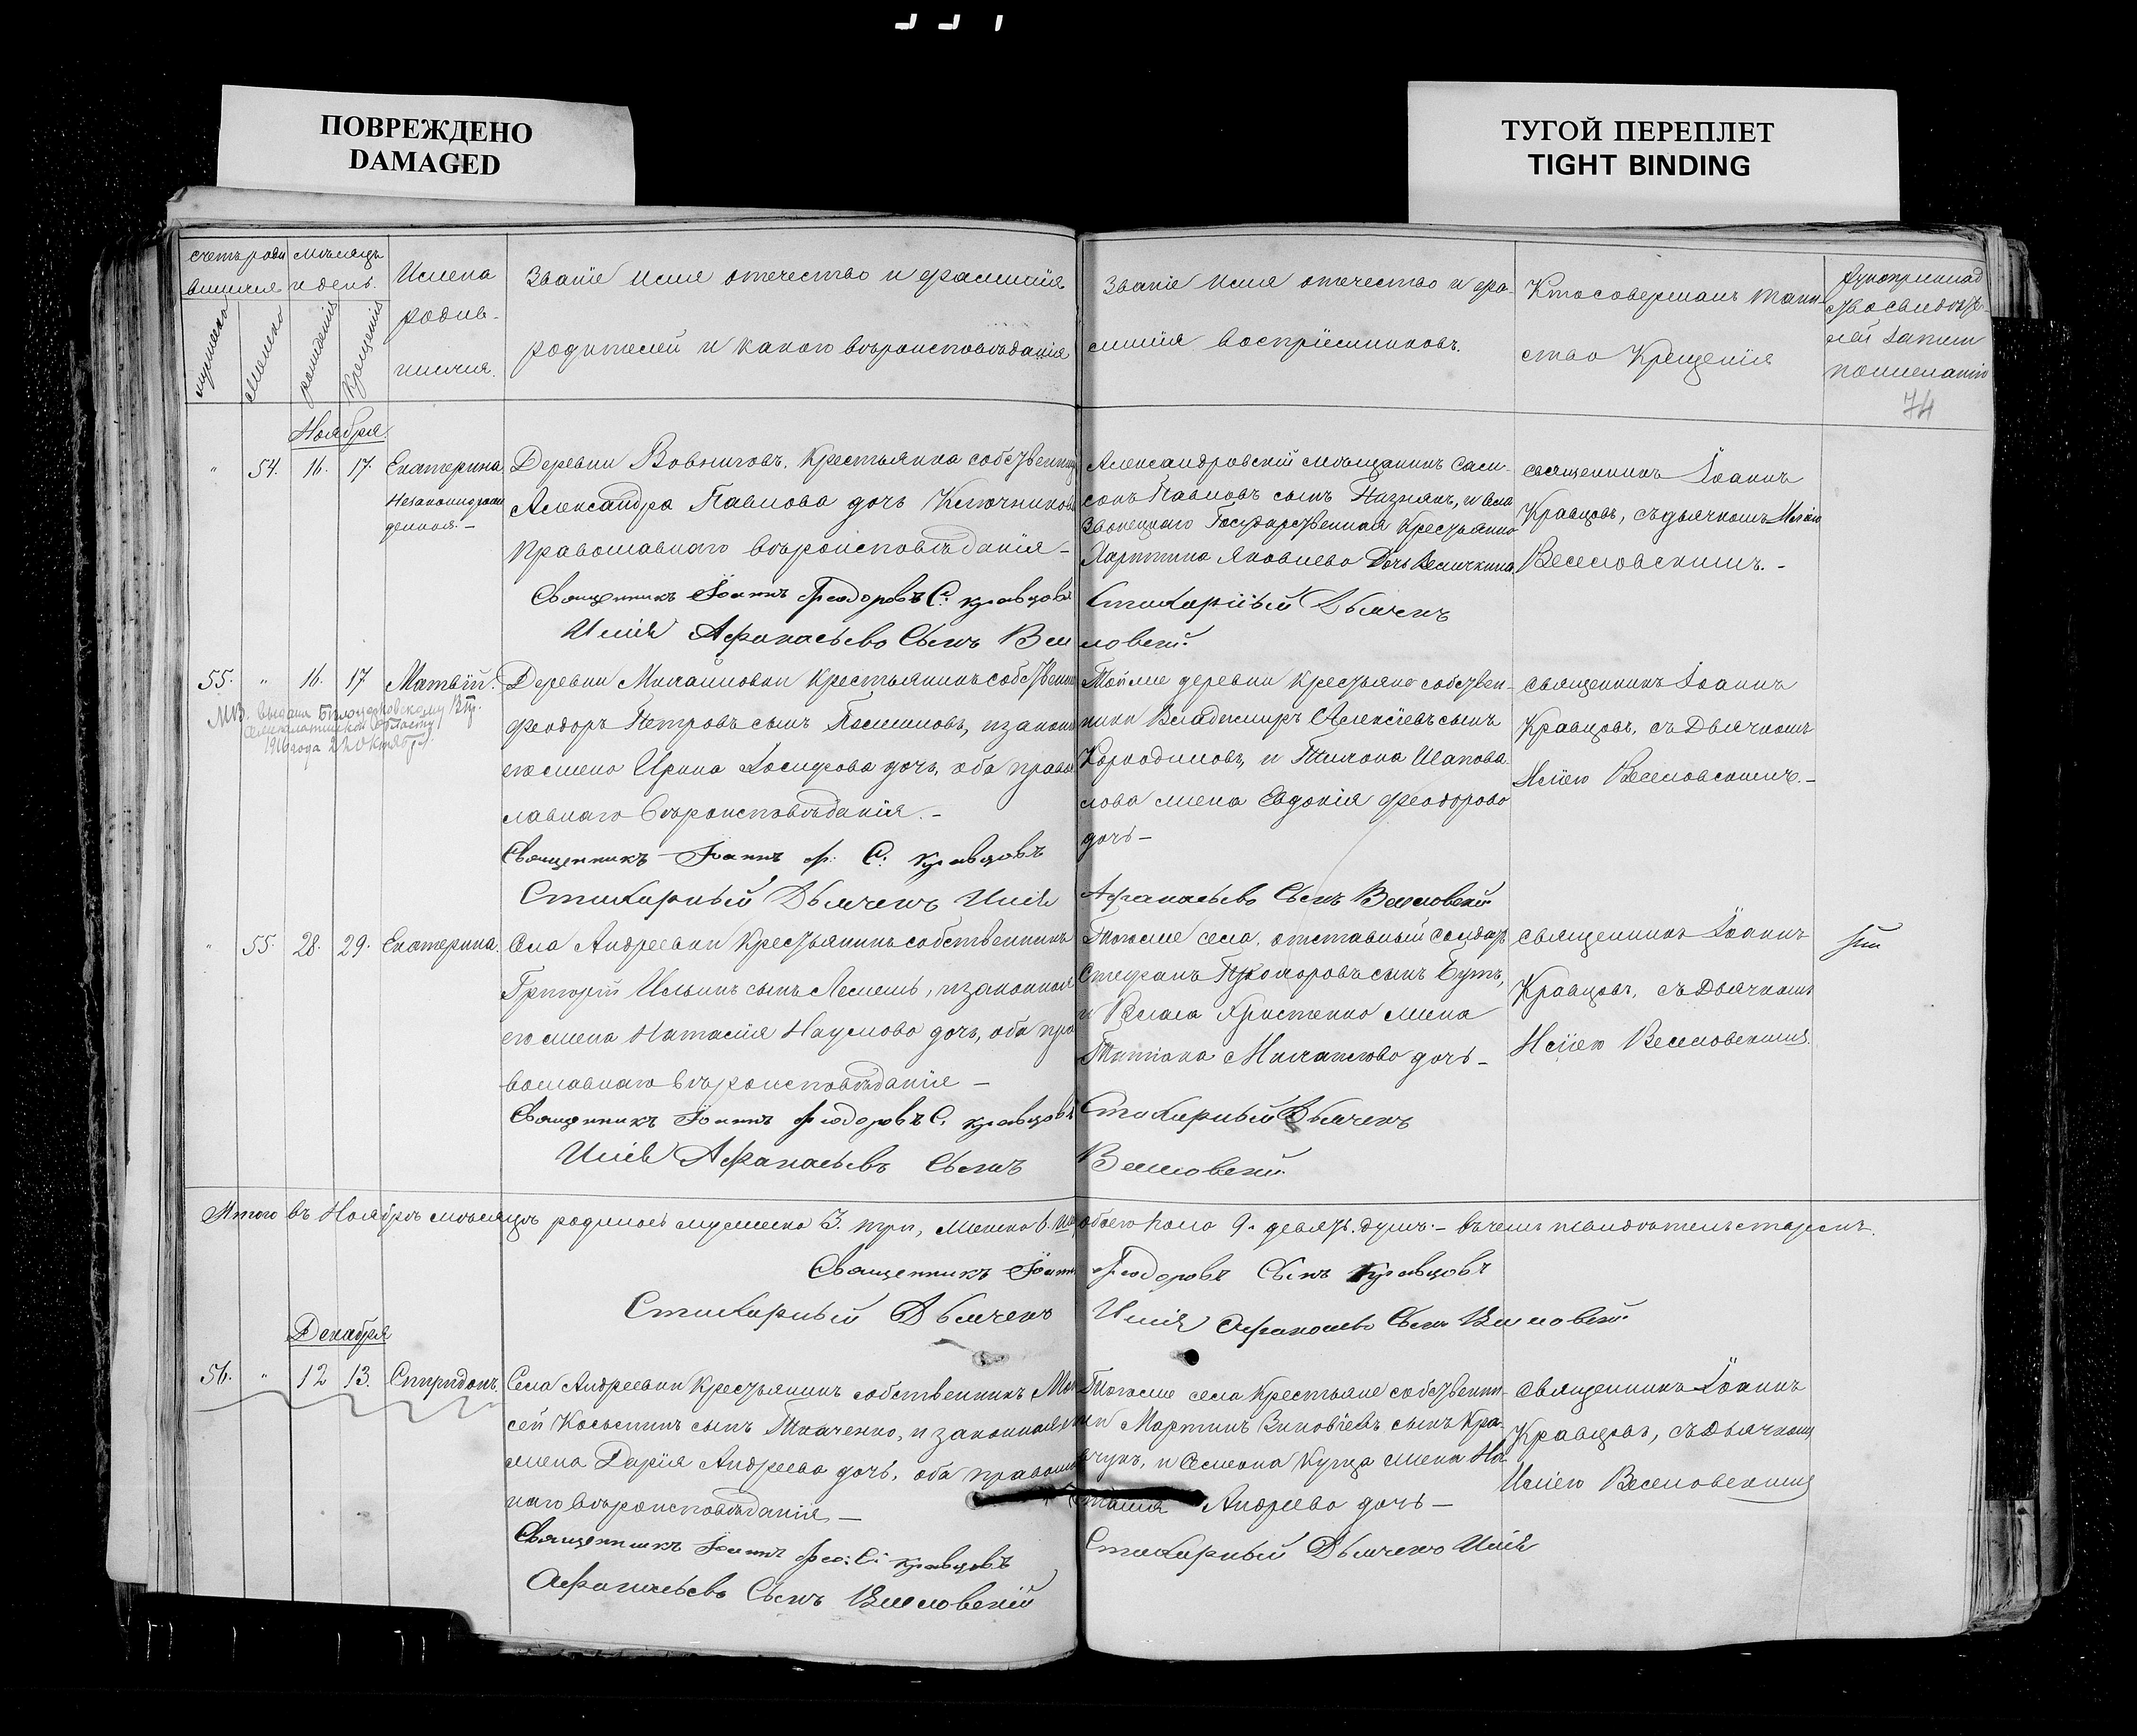 ПОВРЕЖДЕНО
DAMAGED
ТУГОЙ ПЕРЕПЛЕТ
TIGHT BINDING
счетъ роди
вшихся
мѣсяцъ
и день.
мужеска
женска
рожденія
крещенія
Имена
родив-
шихся.
Званіе имя отечество и фамилія
родителей и какого вѣроисповѣданія
Званіе имя отечество и фа-
милія воспріемниковъ.
Кто совершалъ таин-
ство Крещенія
74
Ноября
" 54. 16. 17. Екатерина
Незаконнорож
денная. –
Деревни Вовниговъ, Крестьянка собственница
Александра Павлова дочь Ключникова
православнаго вѣроисповѣданія –
Священникъ Іоаннъ Феодоровъ С. Кравцовъ
Илія Афанасьевъ Сынъ Весе
Александровскій мѣщанинъ Сам-
сонъ Павловъ сынъ и села
Звонецкаго Государственная Крестьянка
Яковлева Дочь Величкина
Стихарный Дьячекъ
ловскій.
священникъ Іоаннъ
Кравцовъ, съ дьячкомъ Иліею
Веселовскимъ. –
55. " 16. 17 Матвѣй.
1916 года 22 Октября.
Деревни Михайловки Крестьянинъ собственникъ
Феодоръ Петровъ сынъ и законная
его жена Ирина Іосифова дочь, оба право
славнаго вѣроисповѣданія. –
Священникъ Іоаннъ Ф. С. Кравцовъ
Стихарный Дьячекъ Илія
Той же деревни Крестьяне собствен-
ники Владимиръ Алексіевъ сынъ
и Тихона Шапова
лова жена Евдокія Феодорова
дочь –
Афанасьевъ Сынъ Веселовскій
священникъ Іоаннъ
Кравцовъ, съ Дьячкомъ
Иліею Веселовскимъ. –
" 55. 28. 29. Екатерина.
Села Андреевки Крестьянинъ собственникъ
Григорій Ильинъ сынъ Лемешъ, и законная
его жена Наталія Наумова дочь, оба пра
вославнаго вѣроисповѣданія –
Священникъ Іоаннъ Феодоровъ С. Кравцовъ
Илія Афанасьевъ Сынъ
Тогоже села, отставный солдатъ
Стефанъ сынъ Бутъ,
и жена
Татіана дочь –
Стихарный Дьячекъ
Веселовскій.
священникъ Іоаннъ
Кравцовъ, съ Дьячкомъ
Иліею Веселовскимъ.
Итого въ Ноябрѣ мѣсяцѣ родилось мужеска 3. три, женска 6. обоего пола 9. девять душъ. –
Священникъ Іоаннъ Феодоровъ Сынъ Кравцовъ
Стихарный Дьячекъ Илія Афанасьевъ Сынъ Веселовскій.
Декабря
56. " 12 13. Спиридонъ.
Села Андреевки Крестьянинъ собственникъ Мои
сей Косьминъ сынъ Ткаченко, и законная
жена Дарія Андреева дочь, оба православ
наго вѣроисповѣданія –
Священникъ Іоаннъ Фео: С: Кравцовъ
Афанасьевъ Сынъ Веселовскій
Тогоже села Крестьяне собственни-
ки Мартинъ Зиновіевъ сынъ Кра-
вчукъ, и Семена Куцца жена На
талія Андреева дочь –
Стихарный Дьячекъ Илія
священникъ Іоаннъ
Кравцовъ, съ Дьячкомъ
Иліею Веселовскимъ